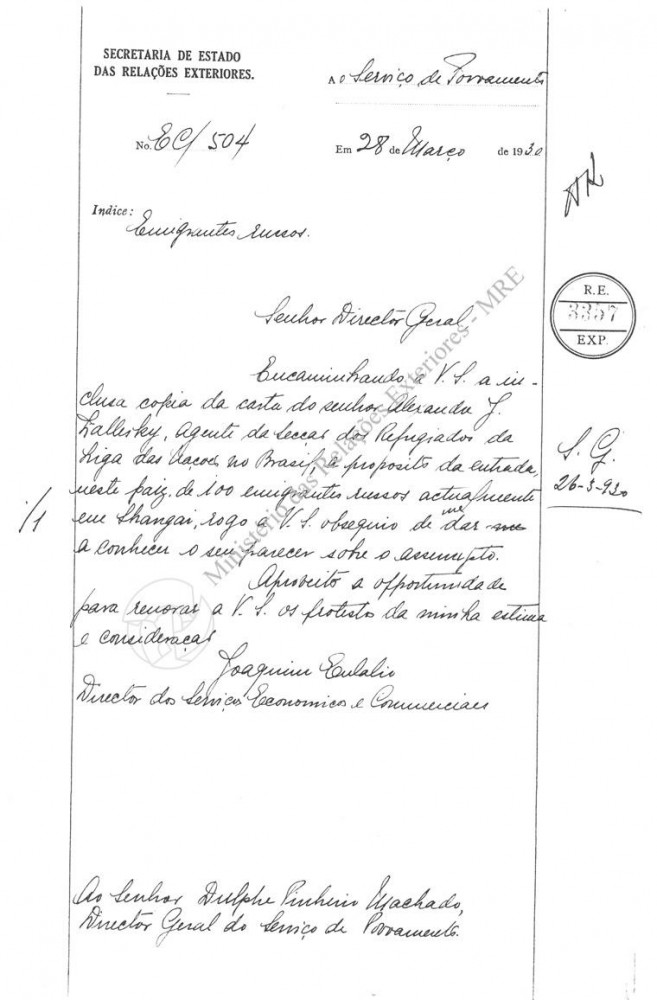 SECRETARIA DE ESTADO
DAS RELAÇÕES EXTERIORES.
Ao Serviço de Povoamento
No. EC/504
Em 28 de Março de 1930
Indice:
Emigrantes russos.
R.E.
3357
EXP.
Senhor Director Geral
Encaminhando a V. S. a in-
clusa copia da carta do senhor Alexandre J.
Zallesky, Agente da Secção dos Refugiados da
Liga das Nações no Brasil, a proposito da entrada,
neste paiz, de 100 emigrantes russos actualmente
em Shangai, rogo a V. S. obsequio de me dar
a conhecer o seu parecer sobre o assumpto.
/1
S. G.
26-3-930
Aproveito a opportunidade
para renovar a V. S. os protestos da minha estima
e consideração
Joaquim Eulalio
Director dos Serviços Economicos e Commerciaes
Ao Senhor Dulphe Pinheiro Machado,
Director Geral do Serviço de Povoamento.
Ministério das Relações Exteriores - MRE